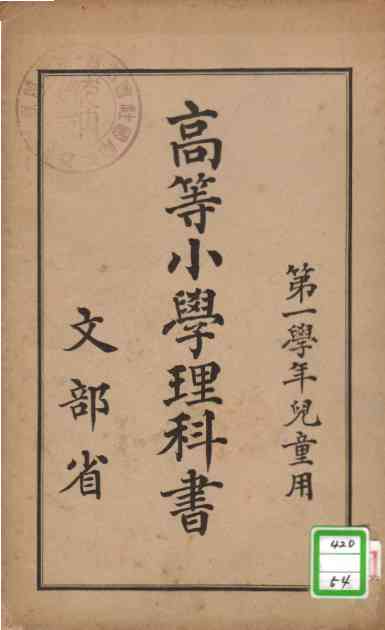 第一學年兒童用
高等小學理科書
文部省
420
54